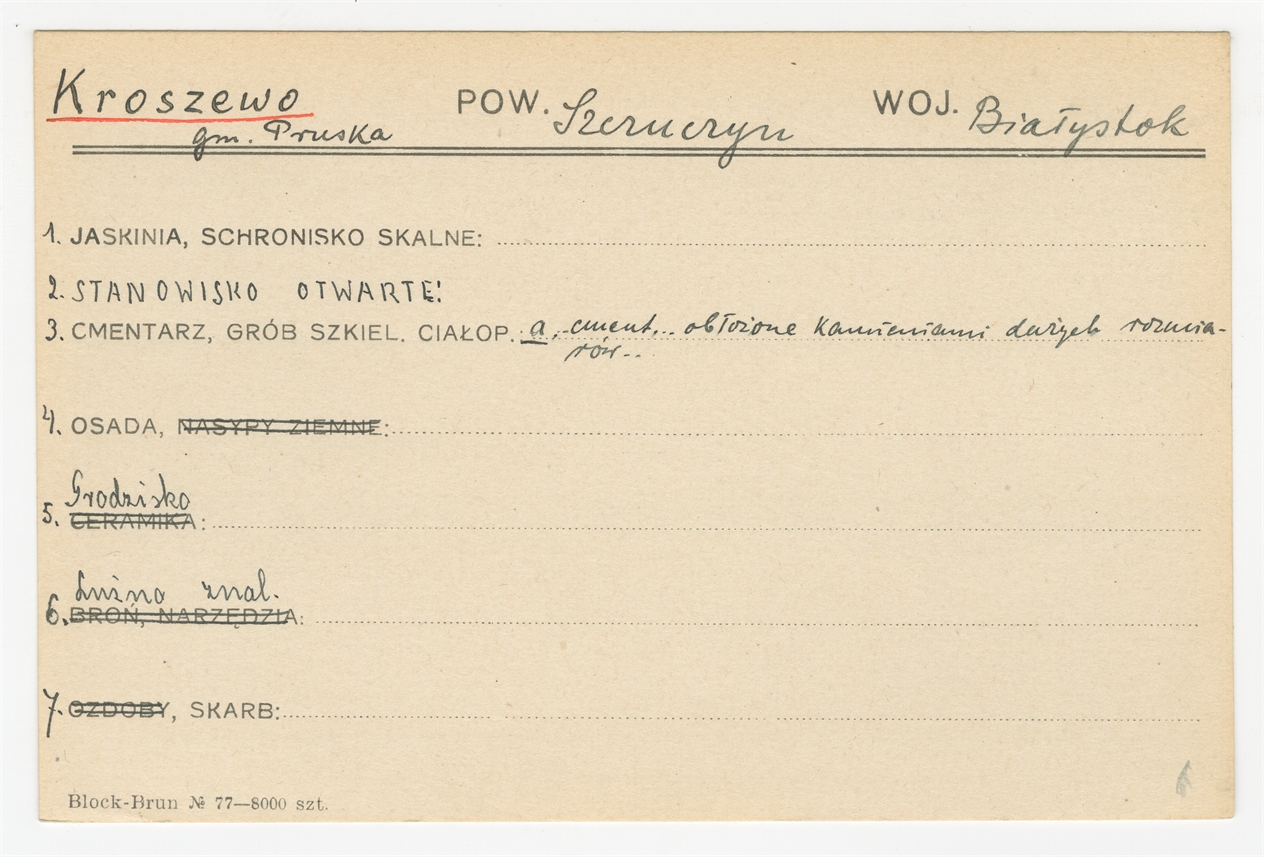 Kroszewo POW. Szczuczyn WOJ. Białystok
gm. Pruska
1. JASKINIA, SCHRONISKO SKALNE:
2. STANOWISKO OTWARTE:
3. CMENTARZ, GRÓB SZKIEL. CIAŁOP. a. cment... obłożone kamieniami dużych rozmia-
rów..
4. OSADA, NASYPY ZIEMNE:
Grodzisko
5. CERAMIKA:
Luźno znal.
6. BROŃ, NARZĘDZIA:
7. OZDOBY, SKARB:
Block-Brun № 77—8000 szt.